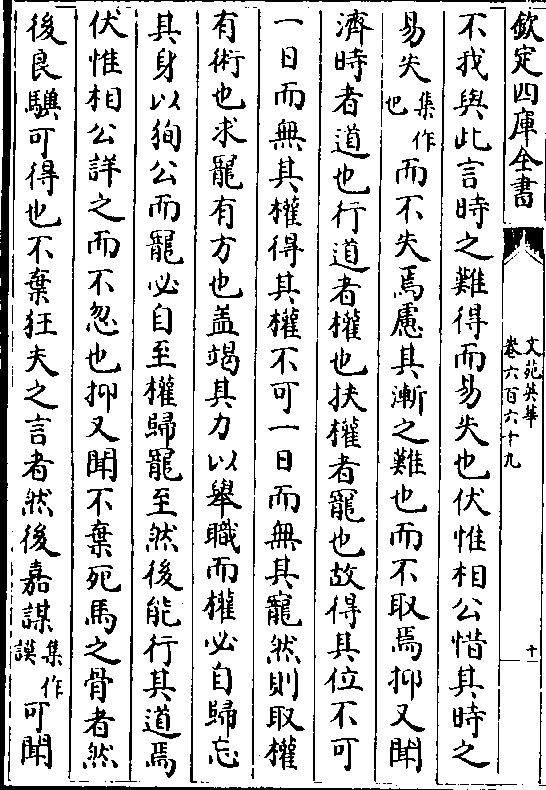 欽定四庫全書
文苑英華
卷六百六十九
十
不我與此言時之難得而易失也伏惟相公惜其時之
易失集作也而不失焉慮其漸之難也而不取焉抑又聞
濟時者道也行道者權也扶權者寵也故得其位不可
一日而無其權得其權不可一日而無其寵然則取權
有術也求寵有方也盖竭其力以舉職而權必自歸忘
其身以狥公而寵必自至權歸寵至然後能行其道焉
伏惟相公詳之而不忽也抑又聞不棄死馬之骨者然
後良驥可得也不棄狂夫之言者然後嘉謀集作謨可聞